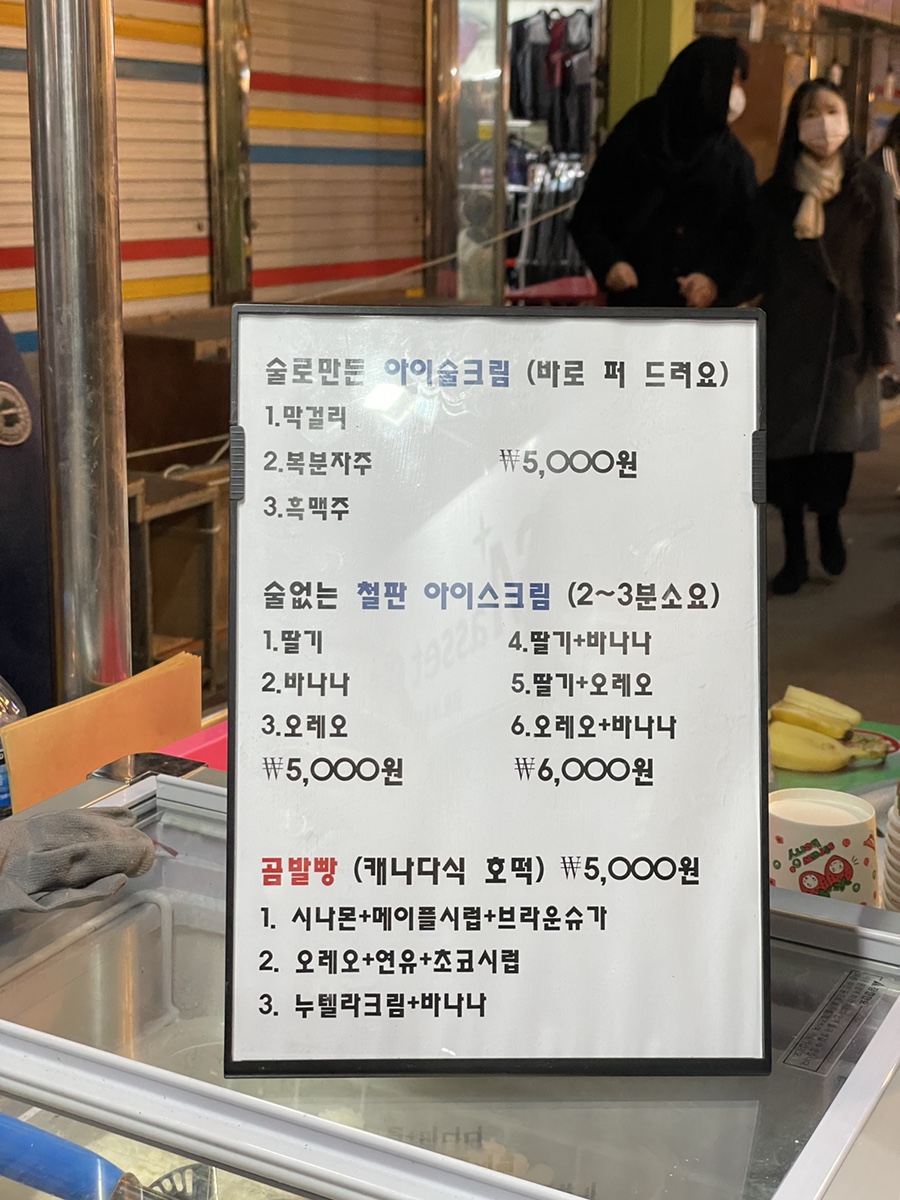 술로만든 아이술크림 (바로 퍼 드려요)
1.막걸리
2.복분자주 ₩5,000원
3.흑맥주
술없는 철판 아이스크림 (2~3분소요)
1.딸기 4.딸기+바나나
2.바나나 5.딸기+오레오
3.오레오 6.오레오+바나나
₩5,000원 ₩6,000원
곰발빵 (캐나다식 호떡) ₩5,000원
1. 시나몬+메이플시럽+브라운슈가
2. 오레오+연유+초코시럽
3. 누텔라크림+바나나